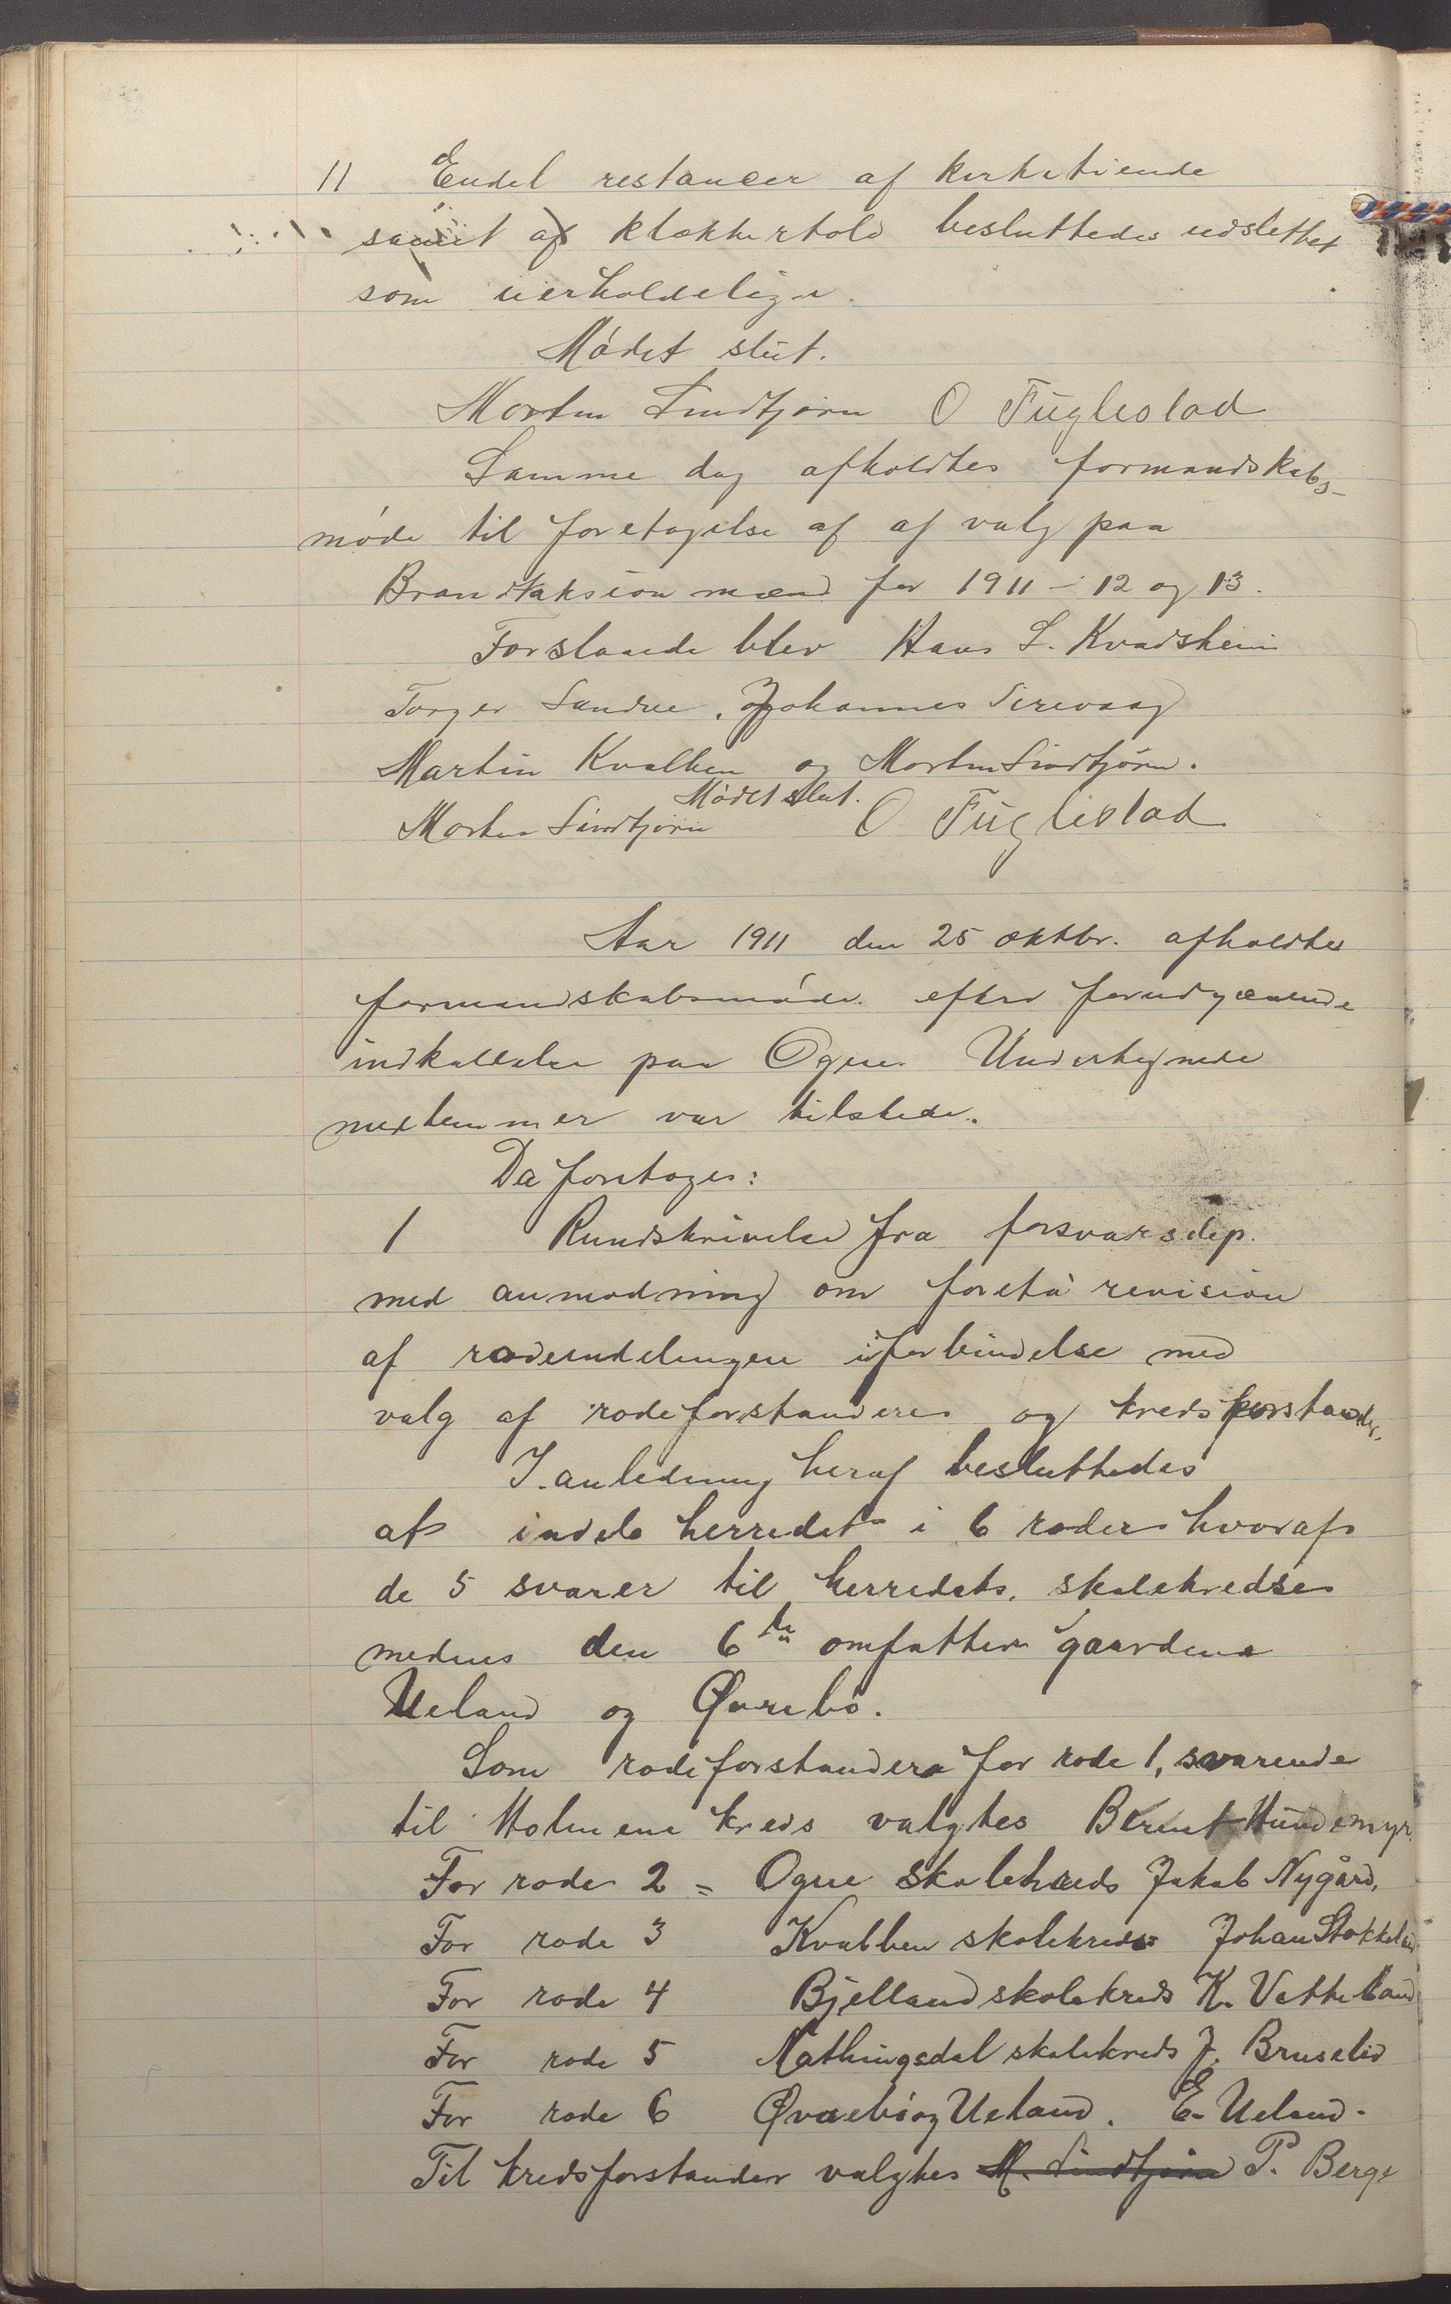 11 Endel restancer af kirketiende
samt af klokkertold besluttedes udslettet
som uerholdelige.
Mødet slut.
Morten Sirdtjørn O Fuglestad
Samme dag afholdtes formandskabs-
møde til foretagelse af af valg paa
Brandtaksionmænd for 1911 - 12 og 13.
Forslaaede blev Hans S. Kvadsheim
Torger Sandve, Johannes Sirevaag
Martin Kvalben og Morten Sirdtjørn.
Mødet slut.
Morten Sirdtjørn O Fuglestad
Aar 1911 den 25 oktbr. afholdtes
formandskabsmøde efter forudgaaende
indkaldelse paa Ogne. Undertegnede
medlemmer var tilstede.
Da foretoges:
1 Rundskrivelse fra forsvarsdep.
med anmodning om foreta revision
af rodeindelingen iforbindelse med
valg af rodeforstandere og kredsforstander.
I anledning heraf besluttedes
at indele herredet i 6 roder hvoraf
de 5 svarer til herredets skolekredse
medens den 6te omfatter gaardene
Ueland og Øvrebø.
Som rodeforstandere for rode 1, svarende
til Holmene kreds valgtes Berent Hundemyr.
For rode 2 = Ogne skolekreds Jakob Nygård,
For rode 3 Kvalben skolekreds Johan Stokkeland
For rode 4 Bjelland skolekreds K. Vatteland
For rode 5 Nathingsdal skolekreds J. Bruselid
For rode 6 Øvrebø og Ueland. E. Ueland.
Til kredsforstander valgtes M. Sirdtjørn P. Berge